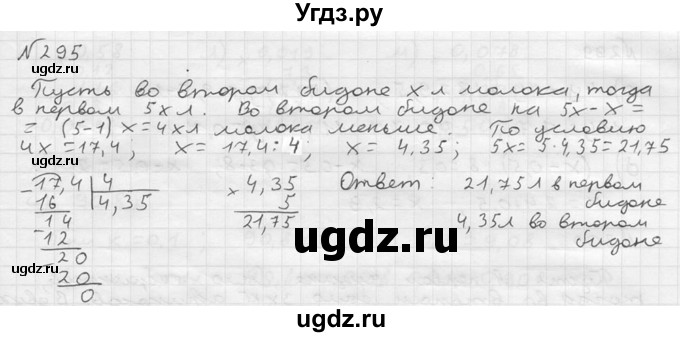 Угдз.ру
№295
ugdz.ru
ugdz.ru
Пусть во втором бидоне x л молока, тогда
в первом 5x л. Во втором бидоне на 5x-x=
= (5-1)x=4x л молока меньше. По условию
4x=17,4; x=17,4:4; x=4,35; 5x=5·4,35=21,75
ugdz.ru
-17,4|4
16 4,35
-14
12
-20
20
0
×4,35
5
21,75
Ответ: 21,75л в первом
бидоне
4,35л во втором
бидоне
ugdz.ru
ugdz.ru
ugdz.ru
ugdz.ru